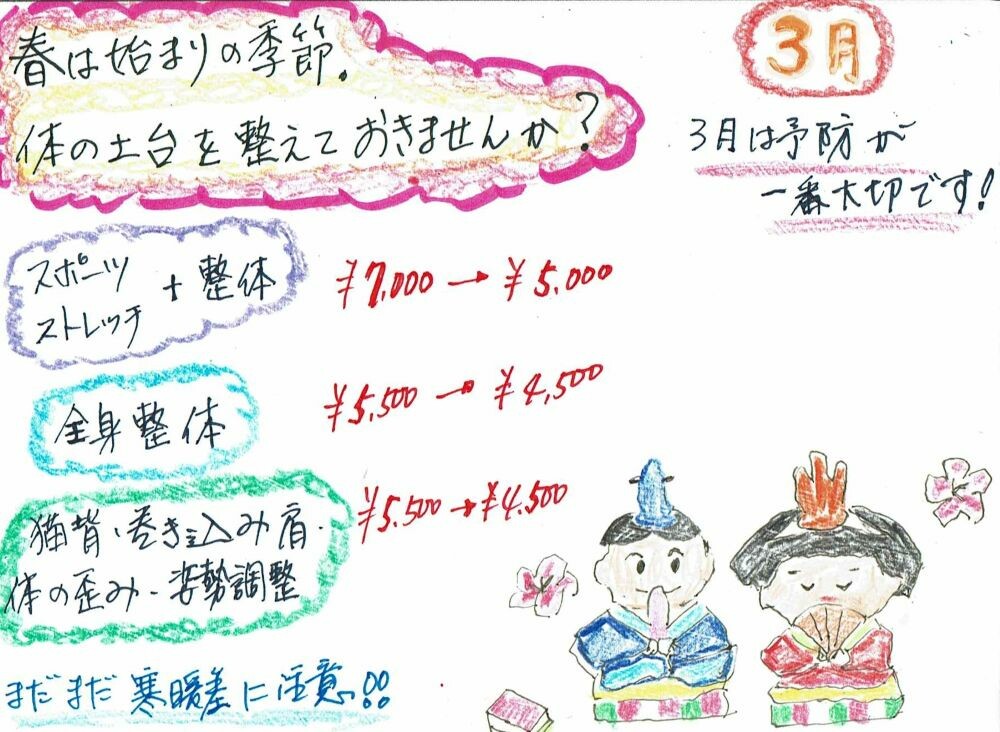 春は始まりの季節.
体の土台を整えておきませんか?
3月
3月は予防が
一番大切です!
スポーツ
ストレッチ
+ 整体
¥7,000 → ¥5,000
全身整体
¥5,500 → ¥4,500
猫背・巻き込み肩・
体の歪み・姿勢調整
¥5.500 → ¥4.500
まだまだ 寒暖差に注意!!